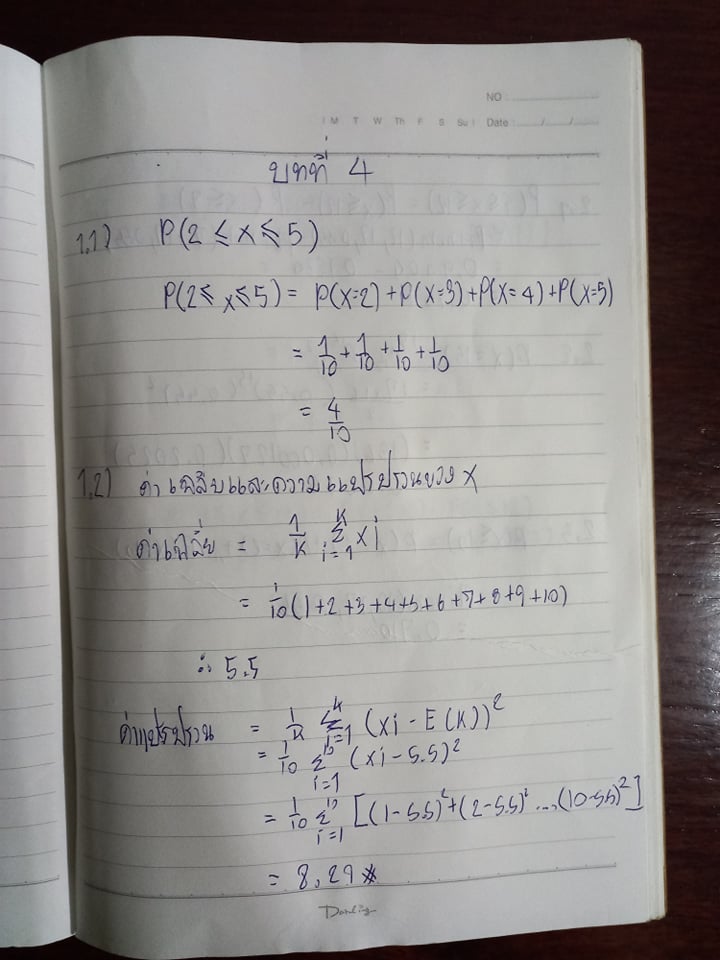 NO :
M T W Th F S Su Date : / /
บทที่ 4
1.1) P(2 ≤ x ≤ 5)
P(2 ≤ x ≤ 5) = P(x=2) + P(x=3) + P(x=4) + P(x=5)
= 1/10 + 1/10 + 1/10 + 1/10
= 4/10
1.2) ค่าเฉลี่ยและความแปรปรวนของ x
ค่าเฉลี่ย = 1/K Σ i=1 K xi
= 1/10 (1+2+3+4+5+6+7+8+9+10)
∴ 5.5
ค่าแปรปรวน = 1/K Σ i=1 K (xi - E(K))²
= 1/10 Σ i=1 10 (xi - 5.5)²
= 1/10 Σ i=1 10 [(1-5.5)² + (2-5.5)² ..., (10-5.5)²]
= 8.29